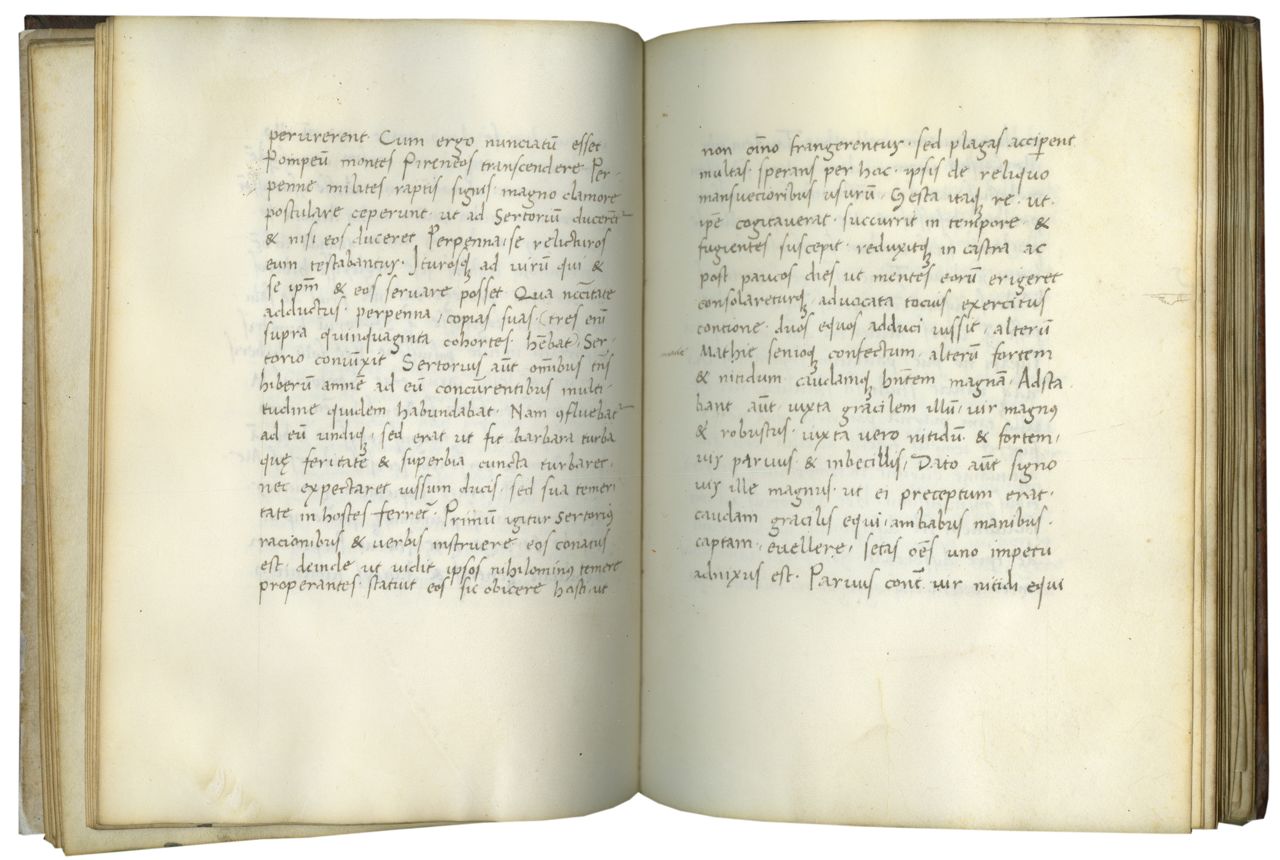 perurerent Cum ergo nunciatū esset
Pompeū montes Pireneos transcendere Per-
penne milites raptis signis· magno clamore
postulare ceperunt· ut ad Sertoriū ducerēt
& nisi eos duceret Perpenna· se relicturos
eum testabantur· Iturosq; ad virū qui &
se ipm̄ & eos servare posset Qua nccītate
adductus· perpenna, copias suas (tres enī
supra quinquaginta cohortes· hēbat) Ser-
torio coniunxit Sertorius aūt omībus trās
hiberū amnē ad eū concūrentibus multi-
tudine quidem habundabat· Nam ꝯfluebāt
ad eū undiq;· sed erat ut fit barbara turba
quę feritate & superbia cuncta turbaret·
nec expectaret iussum ducis· sed sua temeri
tate in hostes ferret· Primū igitur Sertoriꝰ
racionibus & verbis instruere eos conatus
est· deinde ut vidit ipsos nihilominꝰ temere
properantes· statuit eos sic obicere hosti· ut
non oīno frangerentur· sed plagas acciꝑent
multas· sperans per hoc· ipsis de reliquo
mansuecioribus usurū· Gesta itaq; re· ut·
ipē cogitaverat· succurrit in tempore &
fugientes suscepit· reduxitq; in castra ac
post paucos dies ut mentes eorū erigeret
consolareturq;· advocata tocius exercitus
concione· duos equos adduci iussit· alterū
Mathie senioq; confectum· alterū fortem
& nitidum caudamq; hn̄tem magnā· Adsta
bant aūt· iuxta gracilem illū· vir magnꝰ
& robustus· iuxta vero nitidū & fortem·
vir parvus & inbecillis, Dato aūt signo
vir ille magnus· ut ei preceptum erat·
caudam gracilis equi· ambabus manibus·
captam· evellere, setas oēs uno impetu
adnixus est· Parvus cont̄ vir nitidi equi